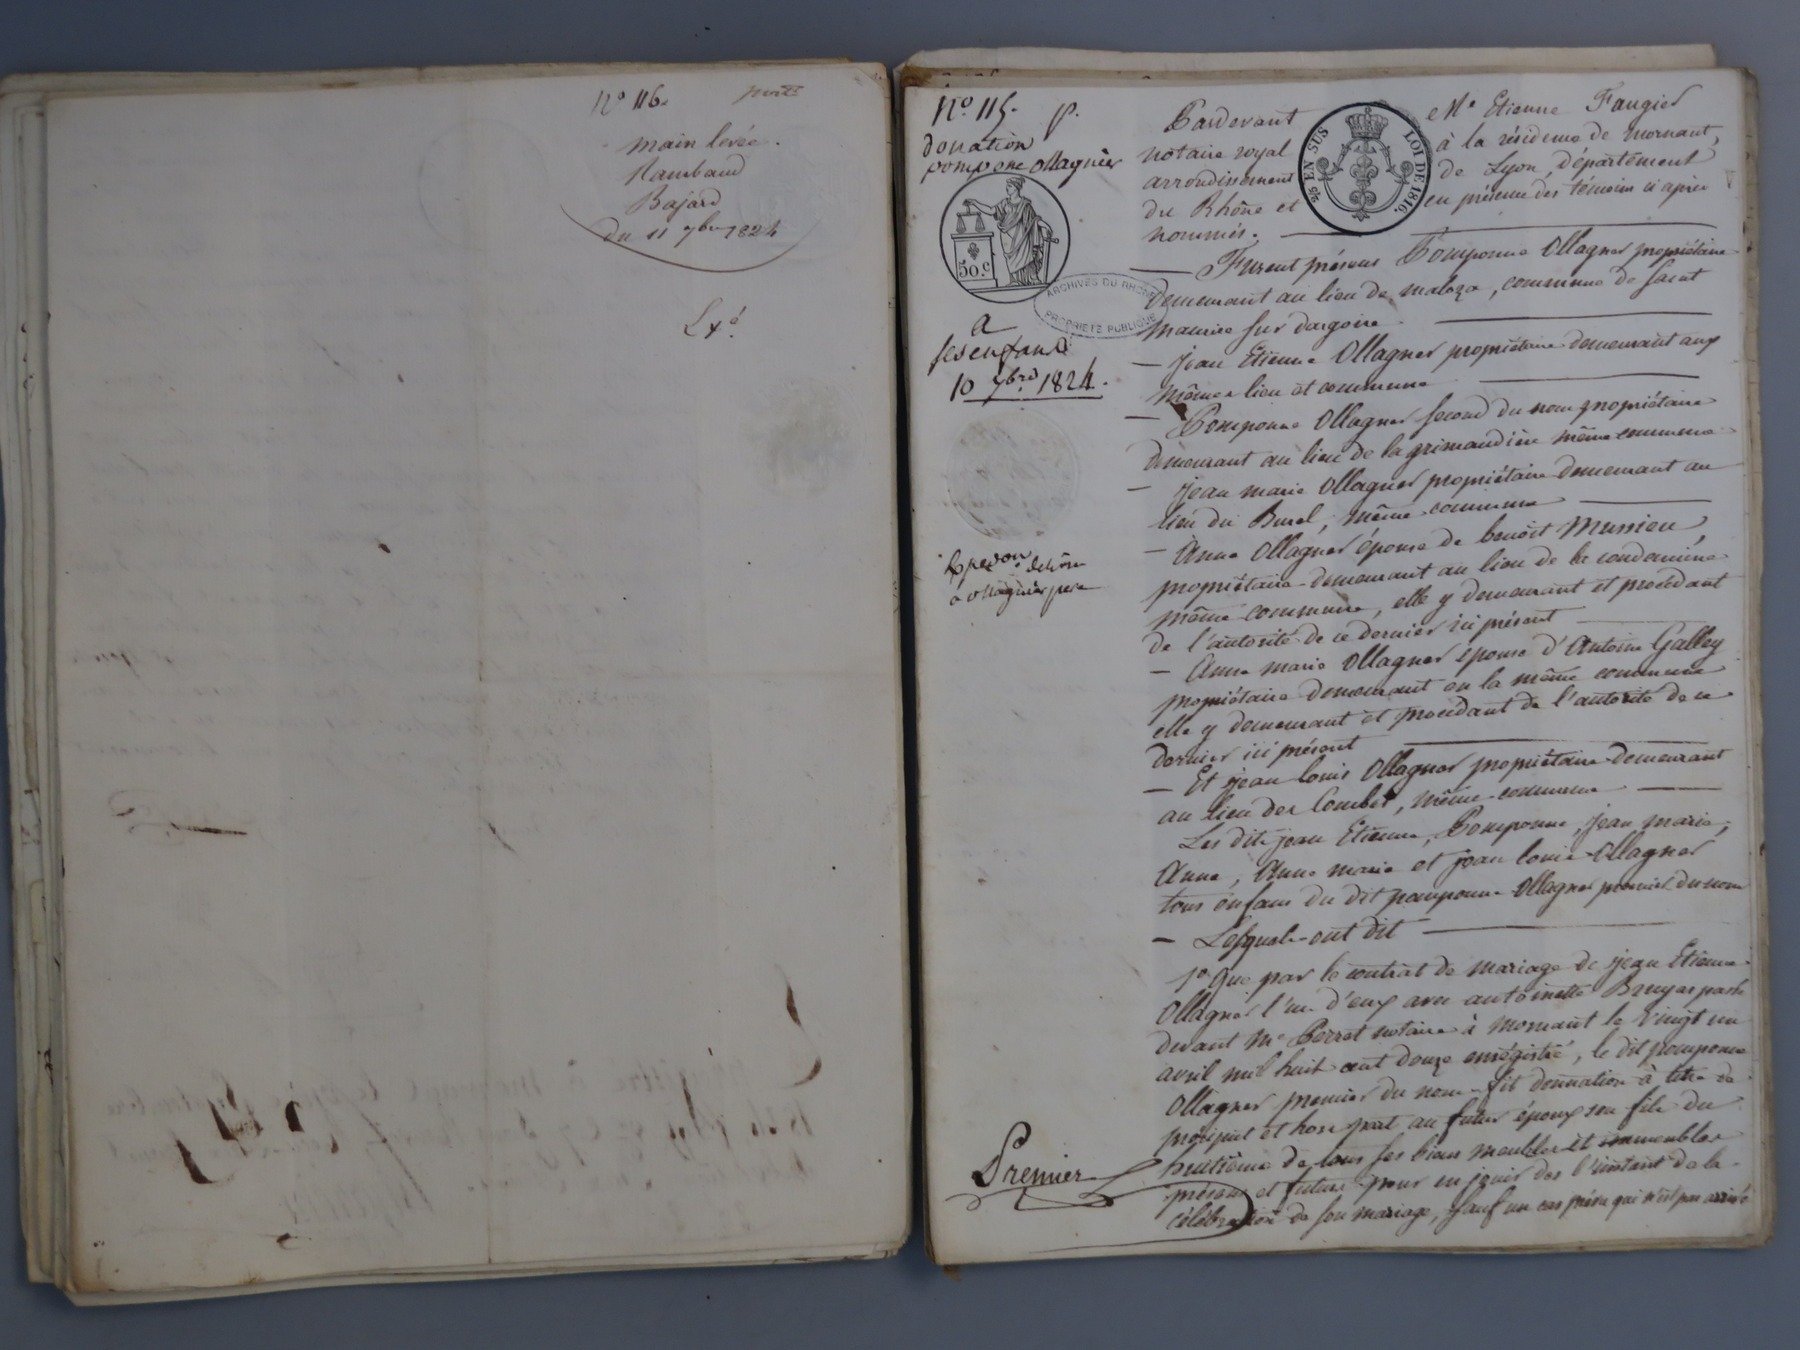 N° 116.
main levée.
Rambaud
Bajard
du 11 7bre 1824
Lxé.
N°. 115. p.
donation
pompone ollagnier
50.c
ARCHIVES DU RHONE
PROPRIETE PUBLIQUE
a
ses enfans
10 7bre 1824.
a ollagnier pere
Premier
⅖ EN SUS LOI DE 1816.
Pardevant Me Etienne Faugier
notaire royal à la résidence de mornant,
arrondissement de Lyon, département
du Rhône et en présence des témoins ci après
nommés.
— Furent présens Pomponne Ollagner propriétaire
demeurant au lieu de , commune de saint
maurice sur dargoire
— jean Etienne Ollagner propriétaire demeurant aux
mêmes lieu et commune
— Pomponne Ollagner second du nom propriétaire
demeurant au lieu de la grimaudière même commune
— jean marie Ollagner propriétaire demeurant au
lieu du Burel, même commune
— Anne Ollagner épouse de benoit Mussieu,
propriétaire demeurant au lieu de la condamine
même commune, elle y demeurant et procédant
de l'autorité de ce dernier ici présent
— Anne marie Ollagner epouse d'Antoine Galley
propriétaire demeurant en la même commune
elle y demeurant et procédant de l'autorité de ce
dernier ici présent
— Et jean louis Ollagner propriétaire demeurant
au lieu des Combes, même commune
Les dits jean Etienne, Pomponne, jean marie,
Anne, Anne marie et jean louis Ollagner
tous enfans du dit pomponne Ollagner premier du nom
— Lesquels ont dit
1° Que par le contrat de mariage de jean Etienne
Ollagner l'un d'eux avec antoinette Bruyas passé
devant Me Perret notaire à Mornant le vingt un
avril mil huit cent douze enrégistré, le dit pomponne
Ollagner premier du nom fit donnation à titre de
préciput et hors part au futur époux son fils du
huitième de tous ses biens meubles et immeubles
présens et futurs pour en jouir dès l'instant de la
célébration de son mariage, sauf un cas prévu qui n'est pas arrivé